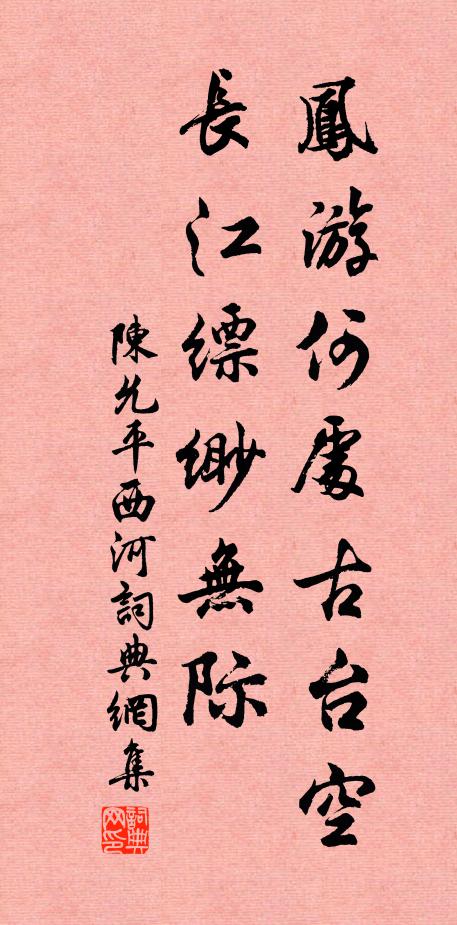 鳳游何處古台空
長江縹緲無际
陳允平西河詞典網集
詞典网印